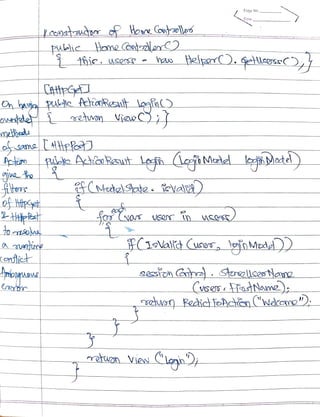 Page No.
Date
/constructor of HomeController
public HomeController()
{ this.users = new Helper().getUsers();}
[HttpGet]
public ActionResult Login()
{ return View();}
[HttpPost]
public ActionResult Login (LoginModel loginModel)
{
if (ModelState.isValid)
{
foreach (var user in users)
{
if (IsValid (user, loginModel))
{
session Control. StoreUserName
(user.FirstName);
return RedictToAction ("Welcome");
}
}
}
return View ("Login");
}
On having
overloaded
methods
of same
Action
give the
filters
of HttpGet
& HttpPost
to resolve
a runtime
conflict
Ambiguous
error